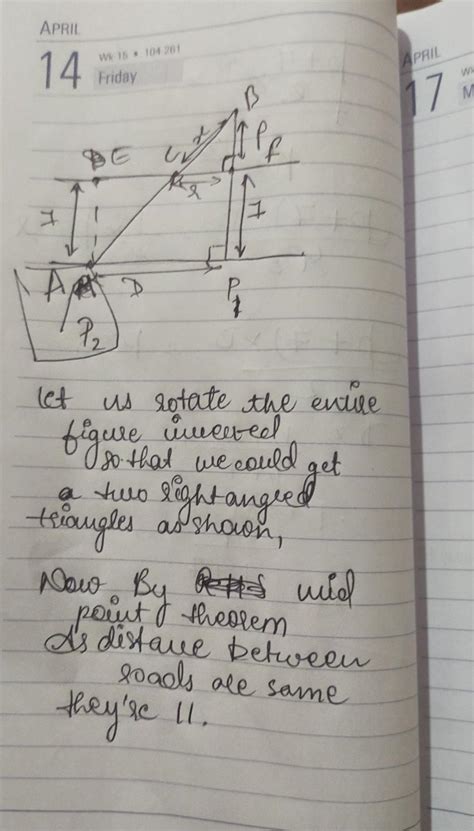 APRIL
14
Wk 15 • 104-261
Friday
APRIL
17
B
x
P
E
C
f
2
7
7
A
D
P1
P2
let us rotate the entire
figure inverted
so that we could get
a two right angled
triangles as shown,
Now By mid
point theorem
As distance between
roads are same
they're ||.